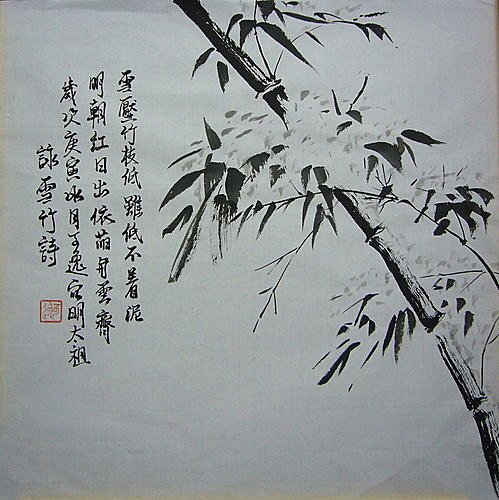 雪壓竹枝低雖低不着泥
明朝紅日出依舊與雲齊
歲次庚寅冰月王逸明太祖
詠雪竹詩